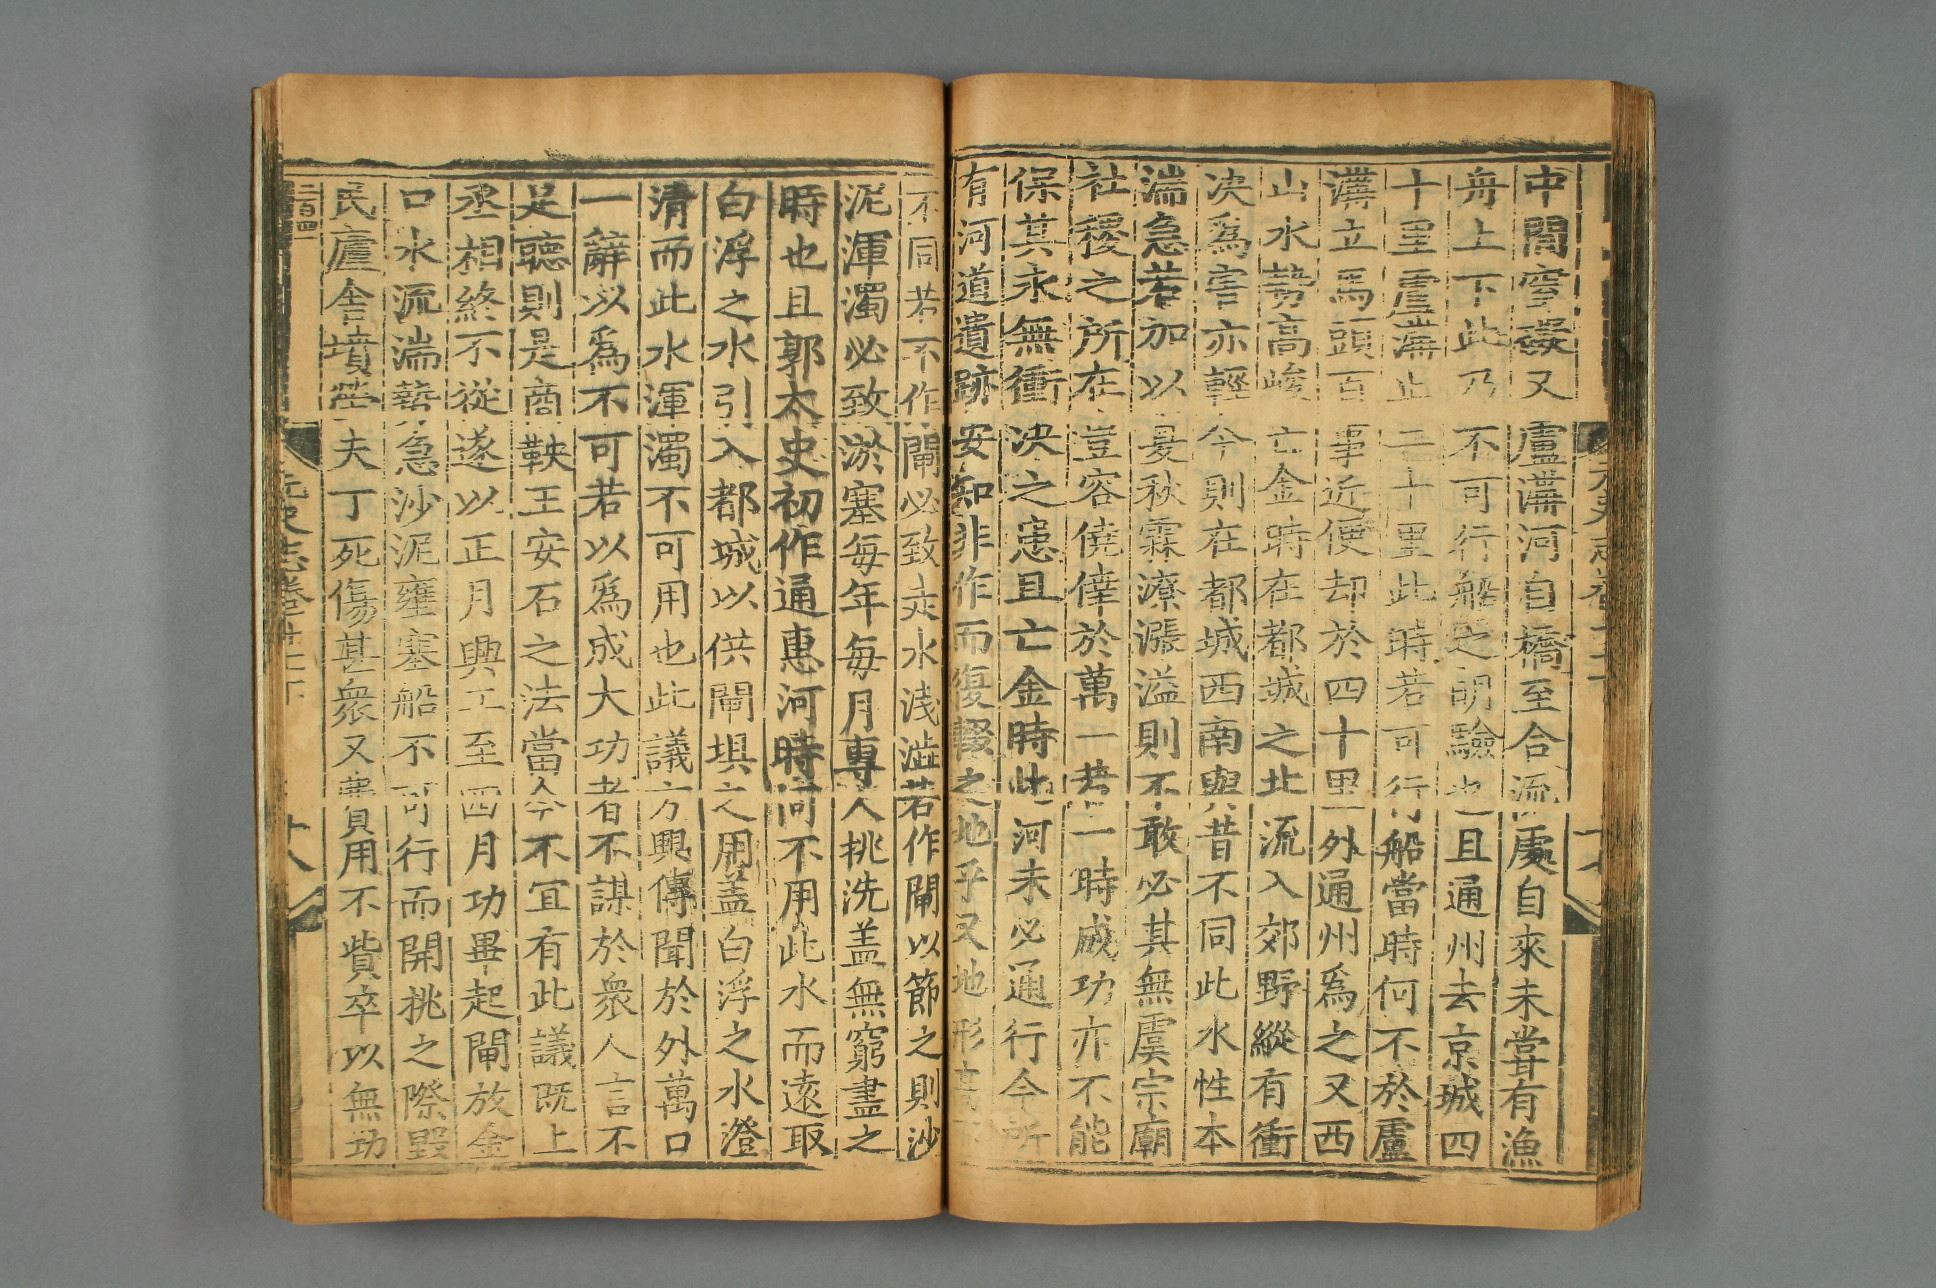 中間窒礙又盧溝河自橋至合流處自來未甞有漁
舟上下此乃不可行船之明驗也且通州去京城四
十里盧溝止二十里此時若可行船當時何不於盧
溝立馬頭百事近便却於四十里外通州爲之又西
山水勢高峻亡金時在都城之北流入郊野縱有衝
决爲害亦輕今則在都城西南與昔不同此水性本
湍急若加以夏秋霖潦漲溢則不敢必其無虞宗廟
社稷之所在豈容僥倖於萬一若一時成功亦不能
保其永無衝决之患且亡金時此河未必通行今所
有河道遺跡安知非作而復輟之地乎又地形高
不同若不作閘必致走水淺澁若作閘以節之則沙
泥渾濁必致淤塞每年每月專人挑洗盖無窮盡之
時也且郭太史初作通惠河時何不用此水而遠取
白浮之水引入都城以供閘垻之用盖白浮之水澄
清而此水渾濁不可用也此議方興傳聞於外萬口
一辭以爲不可若以爲成大功者不謀於衆人言不
足聽則是商鞅王安石之法當今不宜有此議既上
丞相終不從遂以正月興工至四月功畢起閘放金
口水流湍勢急沙泥壅塞船不可行而開挑之際毀
民廬舍墳塋夫丁死傷甚衆又費用不貲卒以無功
元史志卷十七下
十八